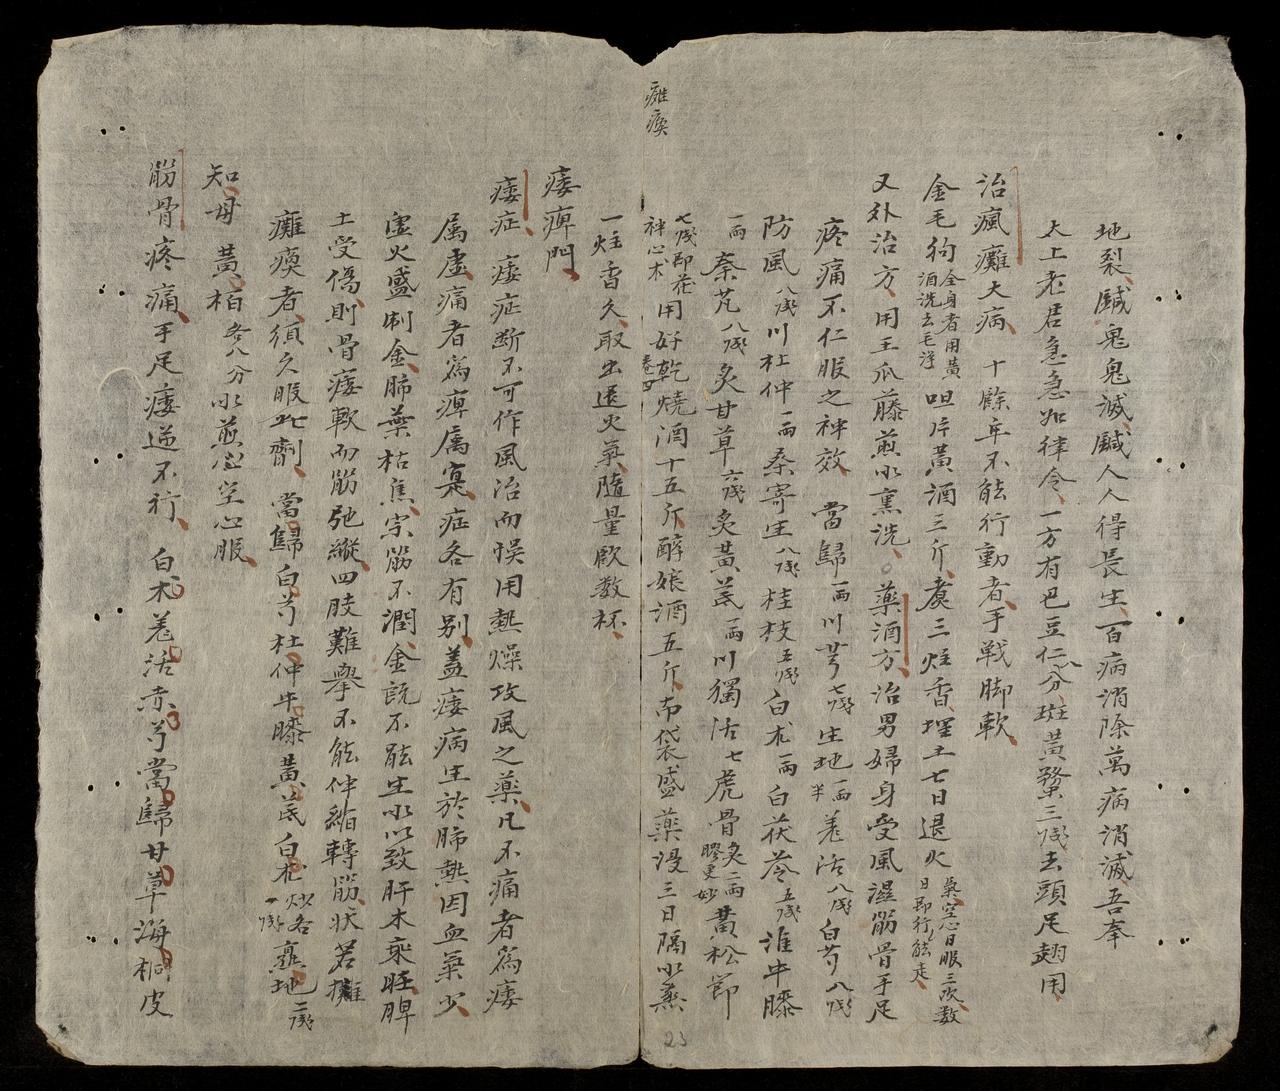 地裂鹹鬼鬼滅鹹人人得長生百病消除萬病消滅吾奉
太上老君急急如律令一方有巴豆仁八分斑黃蝥三戔去頭足翅用
治瘋癱大病 十餘年不能行動者手戰脚軟
金毛狗全身者用黃酒洗去毛淨咀片黃酒三斤煮三炷香埋土七日退火氣空心日服三次数日即行能走
又外治方用王瓜藤煎水熏洗○藥酒方治男婦身受風濕筋骨手足
疼痛不仁服之神效 當歸一兩川芎七戔生地一兩半羗活八戔白芍八戔
防風八戔川杜仲一兩桑寄生八戔桂枝五戔白朮一兩白茯苓五戔淮牛膝
一兩秦艽八戔炙甘草六戔炙黃芪一兩川獨活七虎骨炙二兩膠更妙黃松節
七戔即茯神心木用好乾燒酒十五斤醇娘酒五斤布袋盛藥浸三日隔水蒸
卷四
癱瘓
23
一炷香久取出退火氣隨量飲数杯
痿痺門
痿症 痿症断不可作風治而悞用熱燥攻風之藥凡不痛者為痿
属虛痛者為痺属寔症各有別蓋痿病生於肺熱因血氣少
虛火盛制金肺葉枯焦宗筋不潤金既不能生水以致肝木乘旺脾
土受傷則骨痿軟而筋弛縱四肢難舉不能伸縮轉筋状若癱
癱瘓者須久服此劑 當歸白芍杜仲牛膝黃芪白朮炒各一戔熟地二戔
知母 黃柏各八分水煎空心服
筋骨疼痛手足痿逆不行 白朮羗活赤芍當歸甘草海桐皮